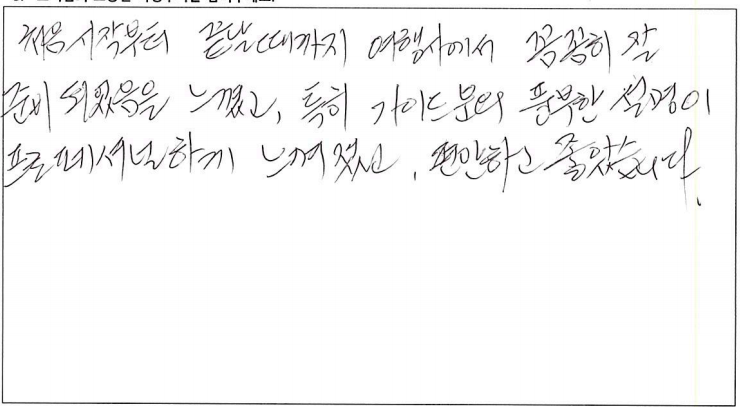 처음 시작부터 끝날때까지 여행사에서 꼼꼼히 잘
준비 되었음을 느꼈고, 특히 가이드분의 풍부한 설명이
프로페셔널하게 느껴졌고, 편안하고 좋았습니다.